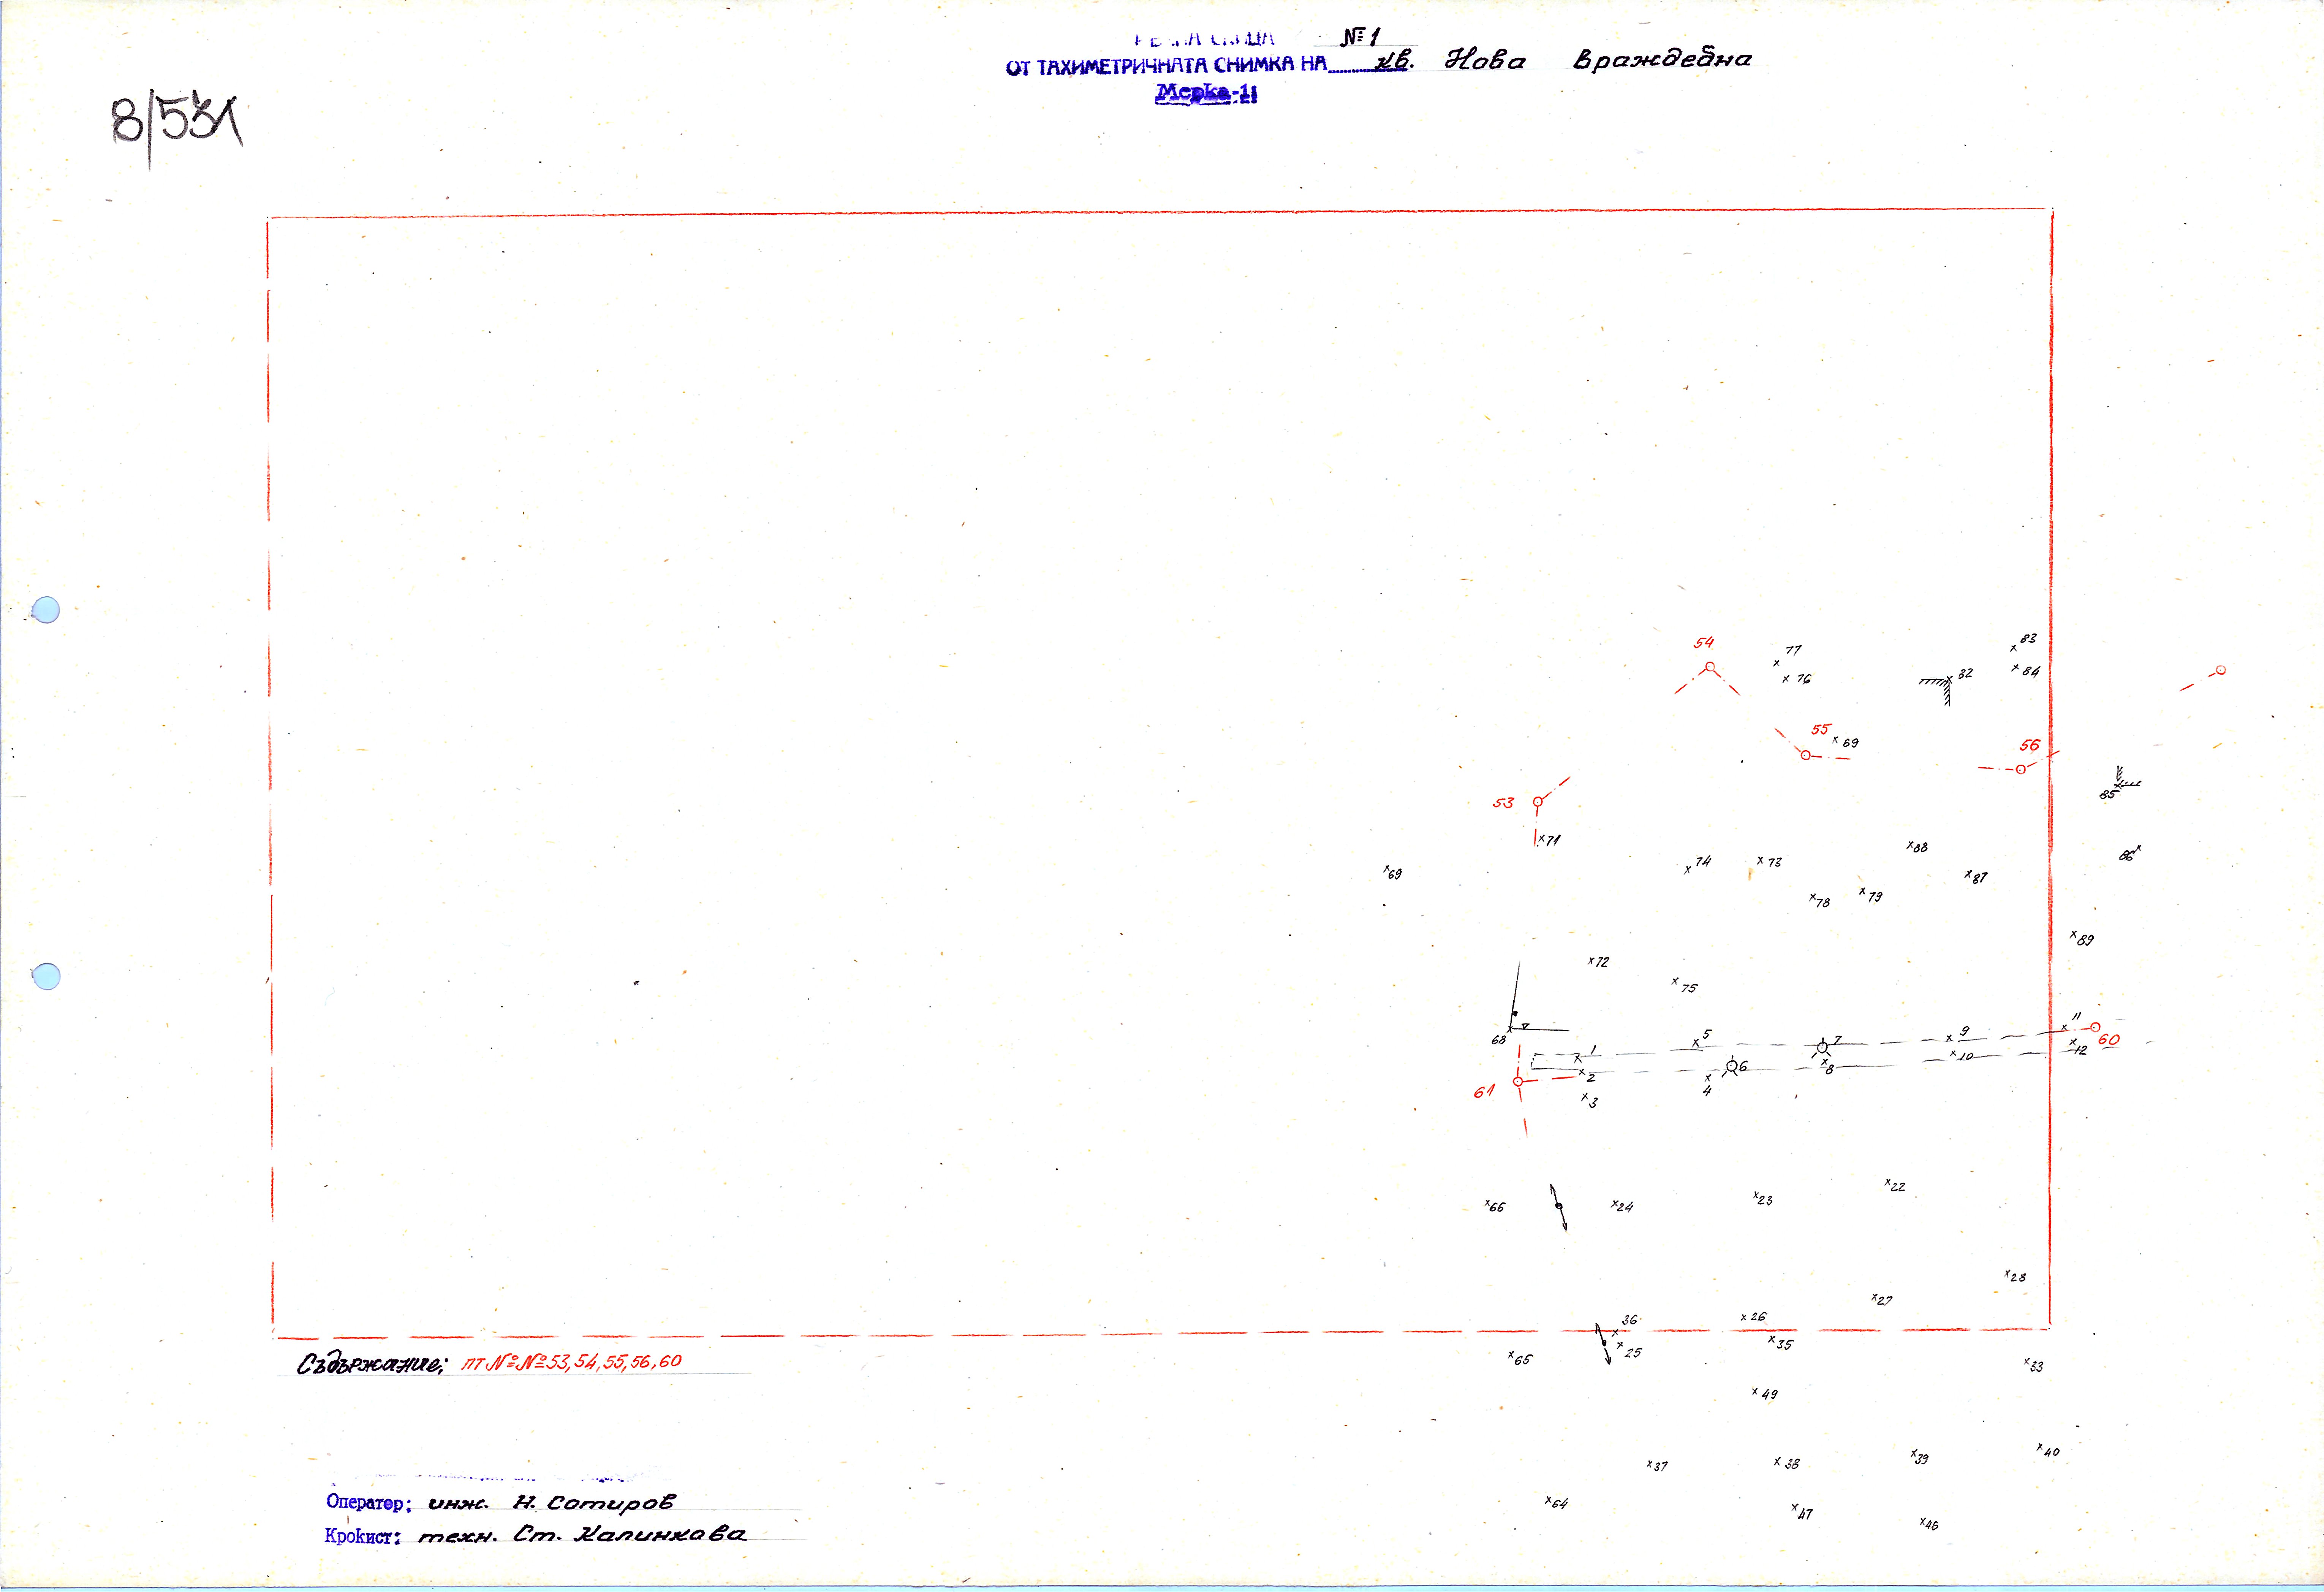 № 1
ОТ ТАХИМЕТРИЧНАТА СНИМКА НА кв. Нова Враждебна
Мерка-1:
8/531
54
77
76
83
84
82
55
69
56
53
85
71
69
74
73
88
87
86
78
79
89
72
75
68
1
5
7
9
11
60
2
6
8
10
12
61
3
4
66
24
23
22
28
27
36
26
25
35
65
33
49
Съдържание: пт №№ 53, 54, 55, 56, 60
37
38
39
40
64
47
46
Оператор: инж. Н. Сотиров
Крокист: техн. Ст. Калинкова